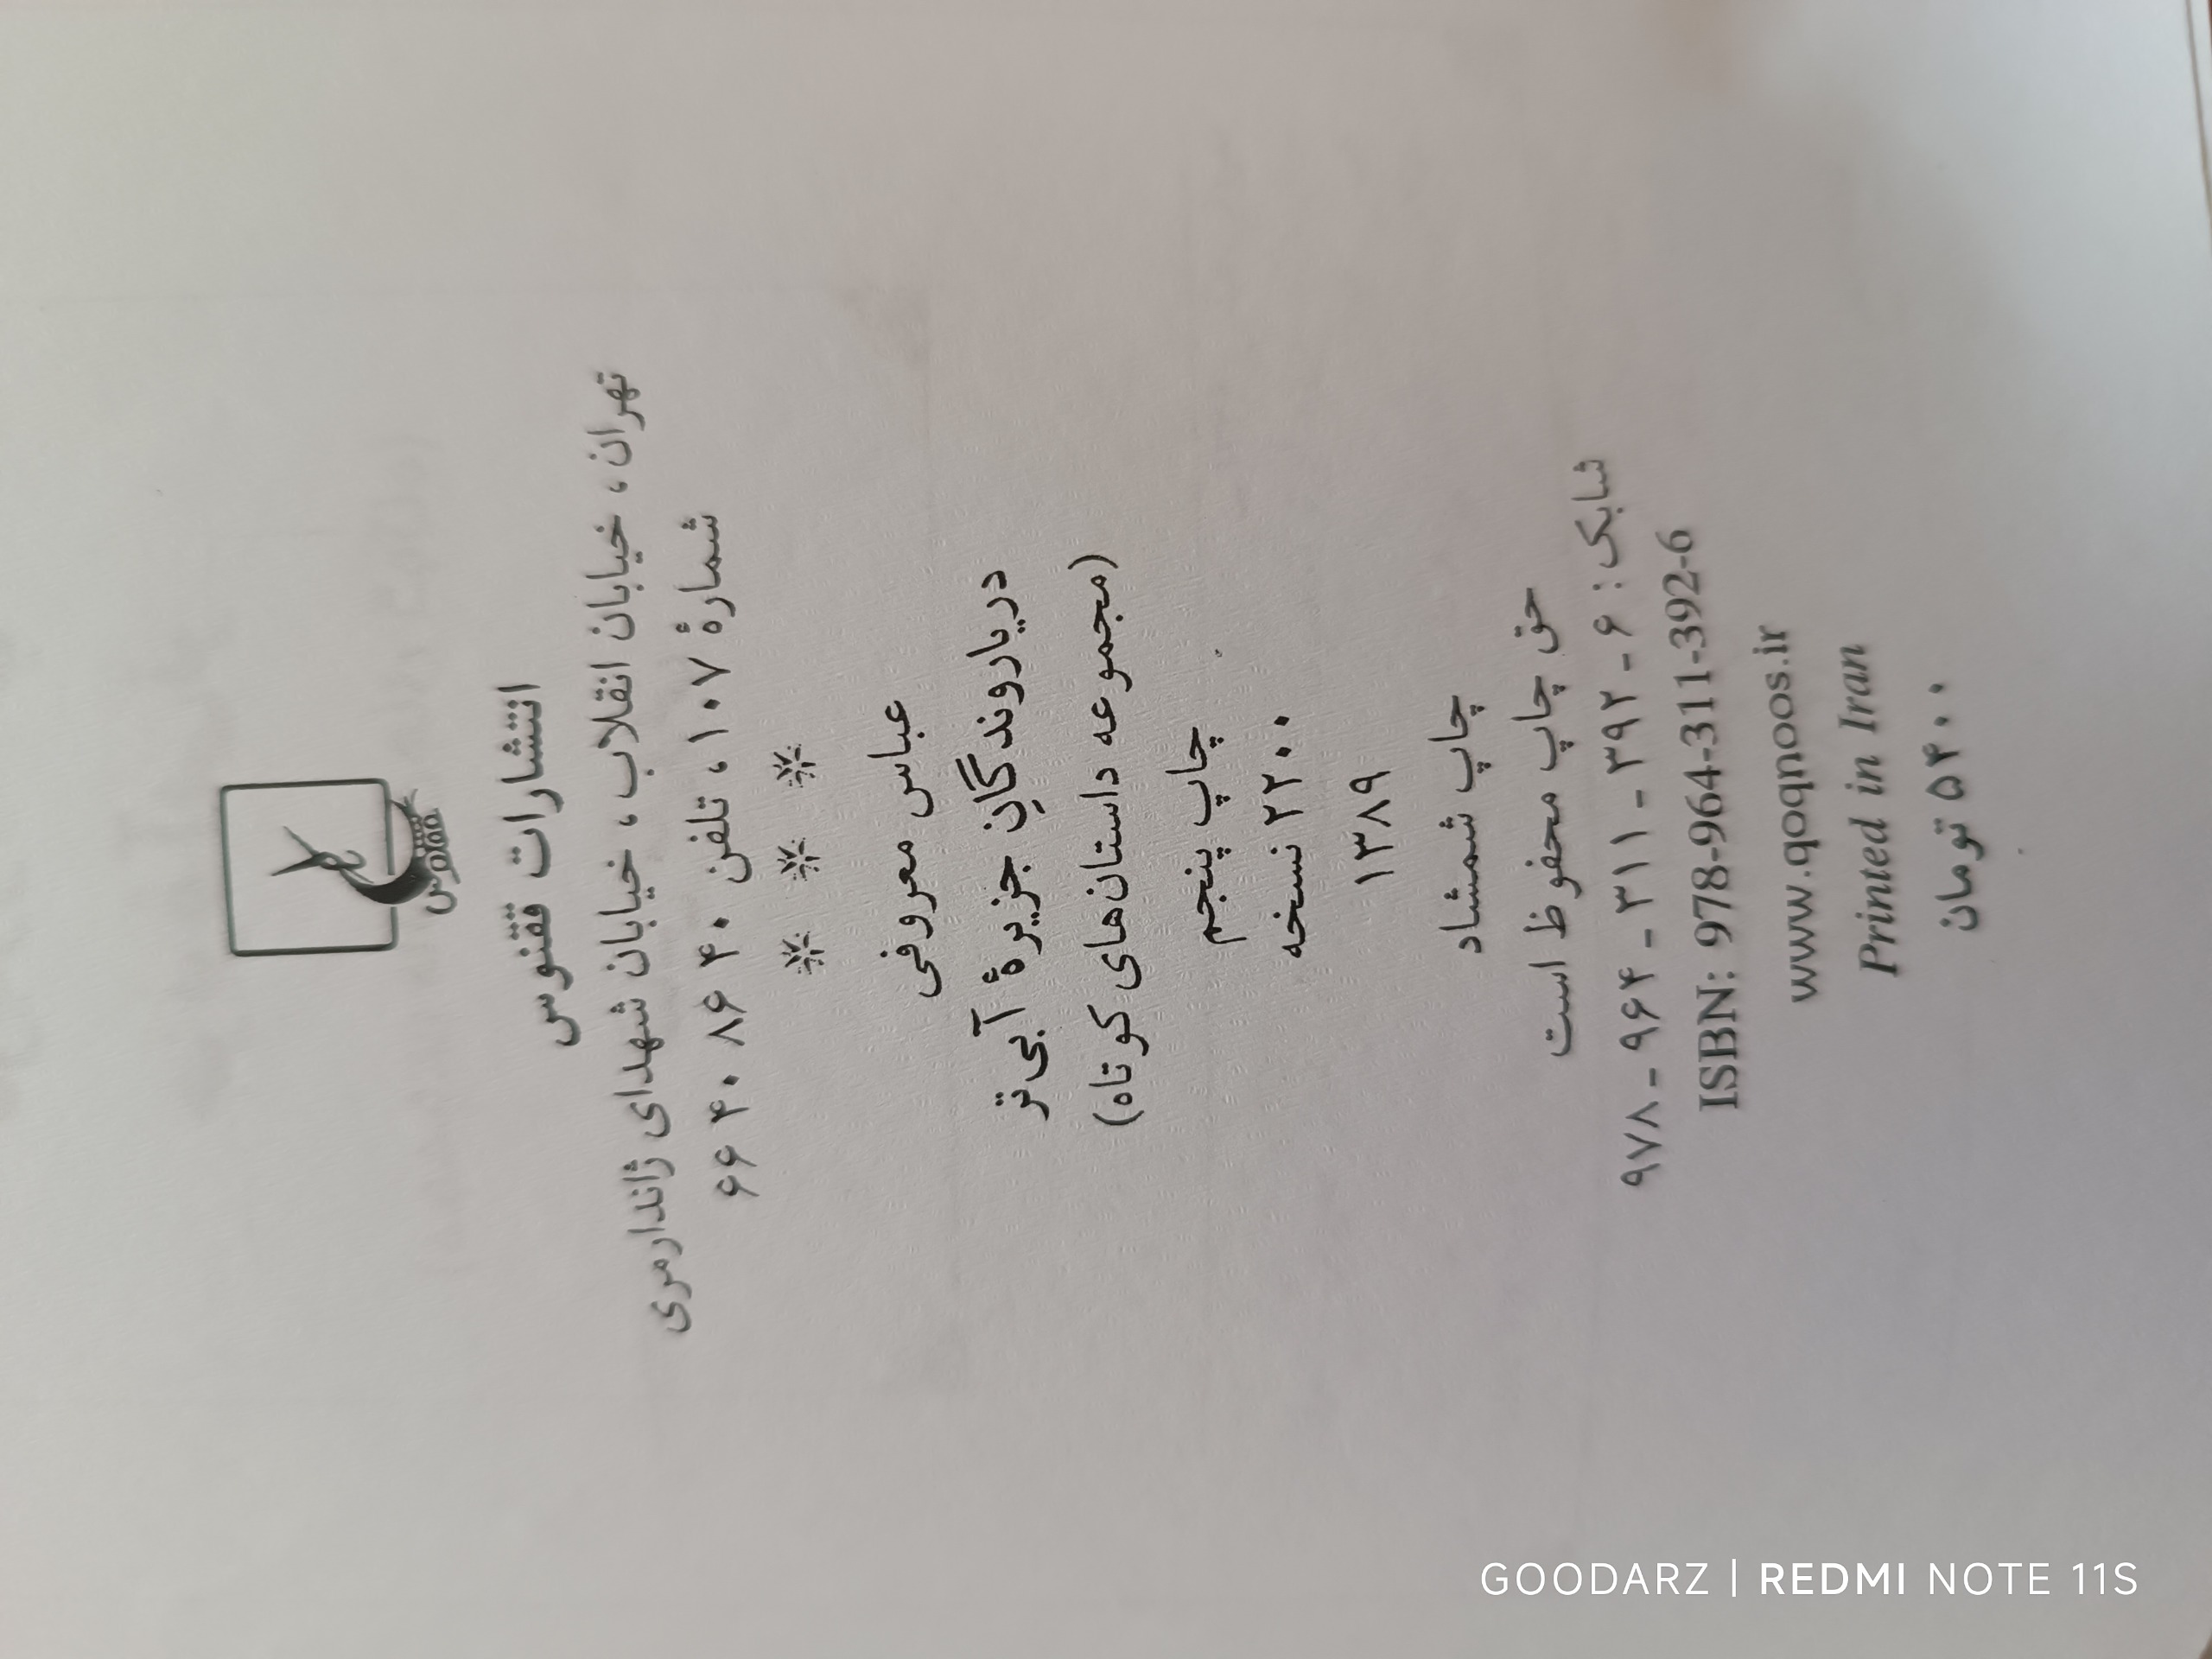 ققنوس
انتشارات ققنوس
تهران، خیابان انقلاب، خیابان شهدای ژاندارمری
شمارهٔ ۱۰۷، تلفن ۴۰ ۸۶ ۴۰ ۶۶
* * *
عباس معروفی
دریاروندگانِ جزیرهٔ آبی‌تر
(مجموعه داستان‌های کوتاه)
چاپ پنجم
۲۲۰۰ نسخه
۱۳۸۹
چاپ شمشاد
حق چاپ محفوظ است
شابک: ۶ - ۳۹۲ - ۳۱۱ - ۹۶۴ - ۹۷۸
ISBN: 978-964-311-392-6
www.qoqnoos.ir
Printed in Iran
۵۴۰۰ تومان
GOODARZ | REDMI NOTE 11S